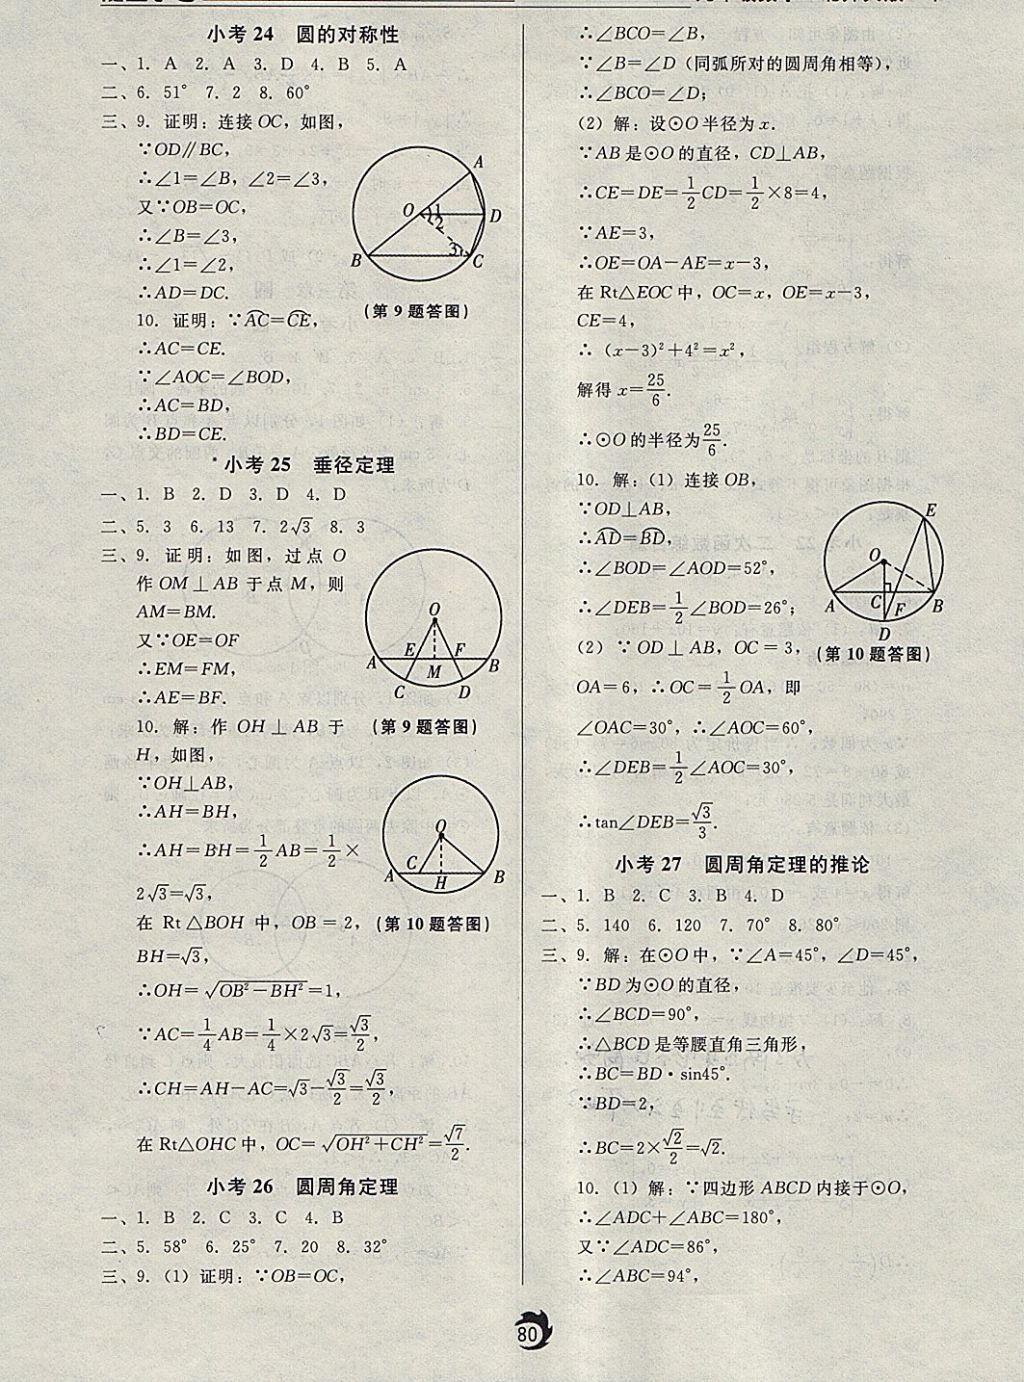 小考 24 圆的对称性
一、1. A 2. A 3. D 4. B 5. A
二、6. 51° 7. 2 8. 60°
三、9. 证明：连接OC，如图，
∵OD∥BC，
∴∠1=∠B，∠2=∠3，
又∵OB=OC，
∴∠B=∠3，
∴∠1=∠2，
∴AD=DC.
A
O
1
2
D
3
B
C
(第 9 题答图)
10. 证明：∵⌒AC=⌒CE，
∴AC=CE.
∵∠AOC=∠BOD，
∴AC=BD，
∴BD=CE.
小考 25 垂径定理
一、1. B 2. D 3. D 4. D
二、5. 3 6. 13 7. 2√3 8. 3
三、9. 证明：如图，过点 O
作 OM⊥AB 于点 M，则
AM=BM.
又∵OE=OF
∴EM=FM，
∴AE=BF.
O
E F
A M B
C D
(第 9 题答图)
10. 解：作 OH⊥AB 于
H，如图，
∵OH⊥AB，
∴AH=BH，
∴AH=BH=1/2AB=1/2×
2√3=√3，
在 Rt△BOH 中，OB=2，
BH=√3，
O
C
A H B
(第 10 题答图)
∴OH=√(OB²−BH²)=1，
∵AC=1/4AB=1/4×2√3=√3/2，
∴CH=AH−AC=√3−√3/2=√3/2，
在 Rt△OHC 中，OC=√(OH²+CH²)=√7/2.
小考 26 圆周角定理
一、1. B 2. C 3. C 4. B
二、5. 58° 6. 25° 7. 20 8. 32°
三、9.（1）证明：∵OB=OC，
∴∠BCO=∠B，
∵∠B=∠D（同弧所对的圆周角相等），
∴∠BCO=∠D；
（2）解：设⊙O半径为x.
∵AB是⊙O的直径，CD⊥AB，
∴CE=DE=1/2CD=1/2×8=4，
∵AE=3，
∴OE=OA−AE=x−3，
在 Rt△EOC 中，OC=x，OE=x−3，
CE=4，
∴（x−3）²+4²=x²，
解得 x=25/6.
∴⊙O的半径为25/6.
10. 解：（1）连接OB，
∵OD⊥AB，
∴⌒AD=⌒BD，
∴∠BOD=∠AOD=52°，
∴∠DEB=1/2∠BOD=26°；
E
O
A C F B
D
(第 10 题答图)
（2）∵OD⊥AB，OC=3，
OA=6，∴OC=1/2OA，即
∠OAC=30°，∴∠AOC=60°，
∴∠DEB=1/2∠AOC=30°，
∴tan∠DEB=√3/3.
小考 27 圆周角定理的推论
一、1. B 2. C 3. B 4. D
二、5. 140 6. 120 7. 70° 8. 80°
三、9. 解：在⊙O中，∵∠A=45°，∠D=45°，
∵BD为⊙O的直径，
∴∠BCD=90°，
∴△BCD是等腰直角三角形，
∴BC=BD·sin45°.
∵BD=2，
∴BC=2×√2/2=√2.
10.（1）解：∵四边形ABCD内接于⊙O，
∴∠ADC+∠ABC=180°，
又∵∠ADC=86°，
∴∠ABC=94°，
80